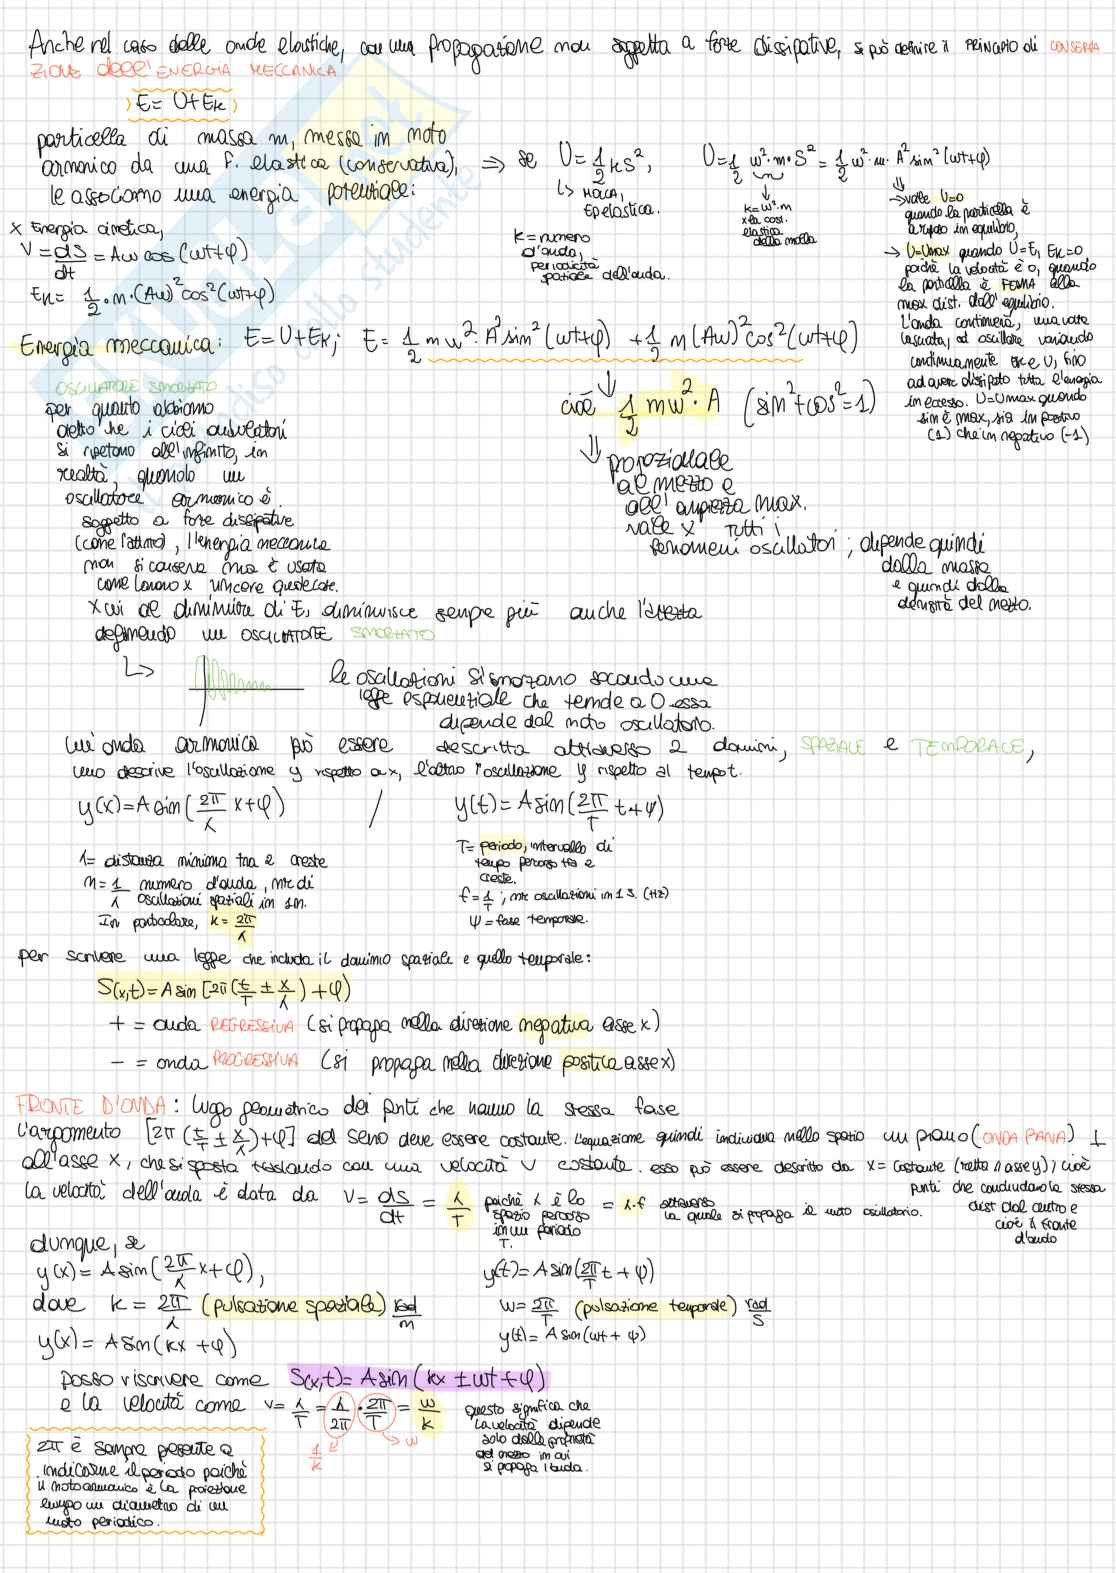 Anche nel caso delle onde elastiche, con una propagazione non soggetta a forze dissipative, si può definire il PRINCIPIO di CONSERVA
ZIONE dell'ENERGIA MECCANICA
E = U+Ek
particella di massa m, messa in moto
armonico da una F. elastica (conservativa),
le associamo una energia potenziale:
⇒ se U = 1/2 kS²,
↳ MOLLA,
Ep elastica.
k = numero
d'onda,
periodicità
spaziale dell'onda.
U = 1/2 w²·m·S² = 1/2 w²·m·A² sin²(wt+φ)
↓
k = w²·m
x la cost.
elastica
della molla
⇓
→ vale U=0
quando la particella è
a riposo in equilibrio,
→ U=Umax quando U=E, Ek=0
poiché la velocità è 0, quando
la particella è FERMA alla
max dist. dall'equilibrio.
L'onda continuerà, una volta
lasciata, ad oscillare variando
continuamente Ek e U, fino
ad avere dissipato tutta l'energia
in eccesso. U=Umax quando
sin è max, sia in positivo
(1) che in negativo (-1)
x Energia cinetica,
V = ds/dt = Aw cos(wt+φ)
Ek = 1/2 · m · (Aw)² cos²(wt+φ)
Energia meccanica: E = U+Ek; E = 1/2 m w² · A² sin²(wt+φ) + 1/2 m (Aw)² cos²(wt+φ)
↓
cioè 1/2 mw² · A (sin²+cos²=1)
⇓ proporzionale
al mezzo e
all'ampiezza max.
vale x tutti i
fenomeni oscillatori; dipende quindi
dalla massa
e quindi dalla
densità del mezzo.
OSCILLATORE SMORZATO
per quanto abbiamo
detto che i cicli oscillatori
si ripetono all'infinito, in
realtà, quando un
oscillatore armonico è
soggetto a forze dissipative
(come l'attrito), l'energia meccanica
non si conserva ma è usata
come lavoro x vincere queste.
x cui al diminuire di E, diminuisce sempre più anche l'altezza
definendo un OSCILLATORE SMORZATO
↳
le oscillazioni si smorzano secondo una
legge esponenziale che tende a 0 essa
dipende dal moto oscillatorio.
Un'onda armonica può essere descritta attraverso 2 domini, SPAZIALE e TEMPORALE,
uno descrive l'oscillazione y rispetto a x, l'altro l'oscillazione y rispetto al tempo t.
y(x) = A sin(2π/λ x+φ) / y(t) = A sin(2π/T t+ψ)
λ = distanza minima tra 2 creste
n = 1/λ numero d'onda, nr di
oscillazioni spaziali in 1m.
In particolare, k = 2π/λ
T = periodo, intervallo di
tempo percorso tra 2
creste.
f = 1/T ; nr oscillazioni in 1 s. (Hz)
ψ = fase temporale.
per scrivere una legge che includa il dominio spaziale e quello temporale:
S(x,t) = A sin[2π(t/T ± x/λ)+φ)
+ = onda REGRESSIVA (si propaga nella direzione negativa asse x)
- = onda PROGRESSIVA (si propaga nella direzione positiva asse x)
FRONTE D'ONDA: luogo geometrico dei punti che hanno la stessa fase
L'argomento [2π(t/T ± x/λ)+φ] del seno deve essere costante. L'equazione quindi individua nello spazio un piano (ONDA PIANA) ⊥
all'asse x, che si sposta traslando con una velocità v costante. esso può essere descritto da x = costante (retta // asse y); cioè
punti che condividono la stessa
dist dal centro e
cioè il fronte
d'onda
La velocità dell'onda è data da V = ds/dt = λ/T poiché λ è lo
spazio percorso
in un periodo
T.
= λ·f attraverso
la quale si propaga il moto oscillatorio.
dunque, se
y(x) = A sin(2π/λ x+φ), y(t) = A sin(2π/T t+ψ)
dove k = 2π/λ (pulsazione spaziale) rad/m w = 2π/T (pulsazione temporale) rad/s
y(x) = A sin(kx+φ) y(t) = A sin(wt+ψ)
posso riscrivere come S(x,t) = A sin(kx ± wt+φ)
e la velocità come v = λ/T = λ/2π · 2π/T = w/k
1/k
→ w
questo significa che
la velocità dipende
solo dalle proprietà
del mezzo in cui
si propaga l'onda.
2π è sempre presente a
indicarne il periodo poiché
il moto armonico è la proiezione
lungo un diametro di un
moto periodico.